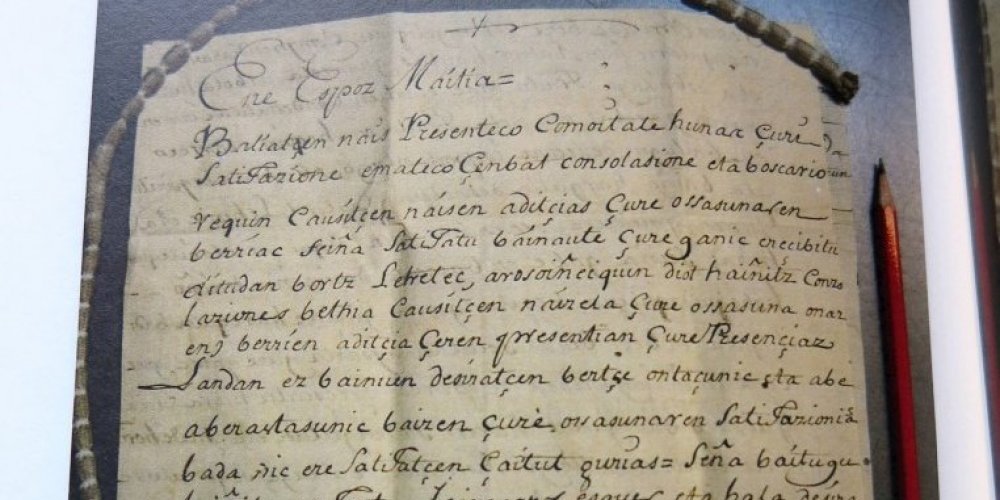 Ene Espoz Maitia=
Baliatçen náis Presenteco Comoitate hunax Çure
Satifazione emateco Çenbat consolasione eta boscario un
requin Causitçen náisen aditçias Çure ossasunaren
berriac seiña Satifatu báinaute Çure ganic erecibitu
ditudan bortz Letretec, arosoiñeiquin dist hainitz Cons
laziones bethia Causitçen náizela Çure ossasuna onar
en berrien aditçia Çeren qresentian Çure Presençiaz
Landan ez bainiuen desiratçen bertçe ontaçunic eta abe
aberastasunic baizen Çure ossasunaren Satifazionia
bada nic ere Satifatçen Çaitut gurias= Seña báitugu
esques eta hala